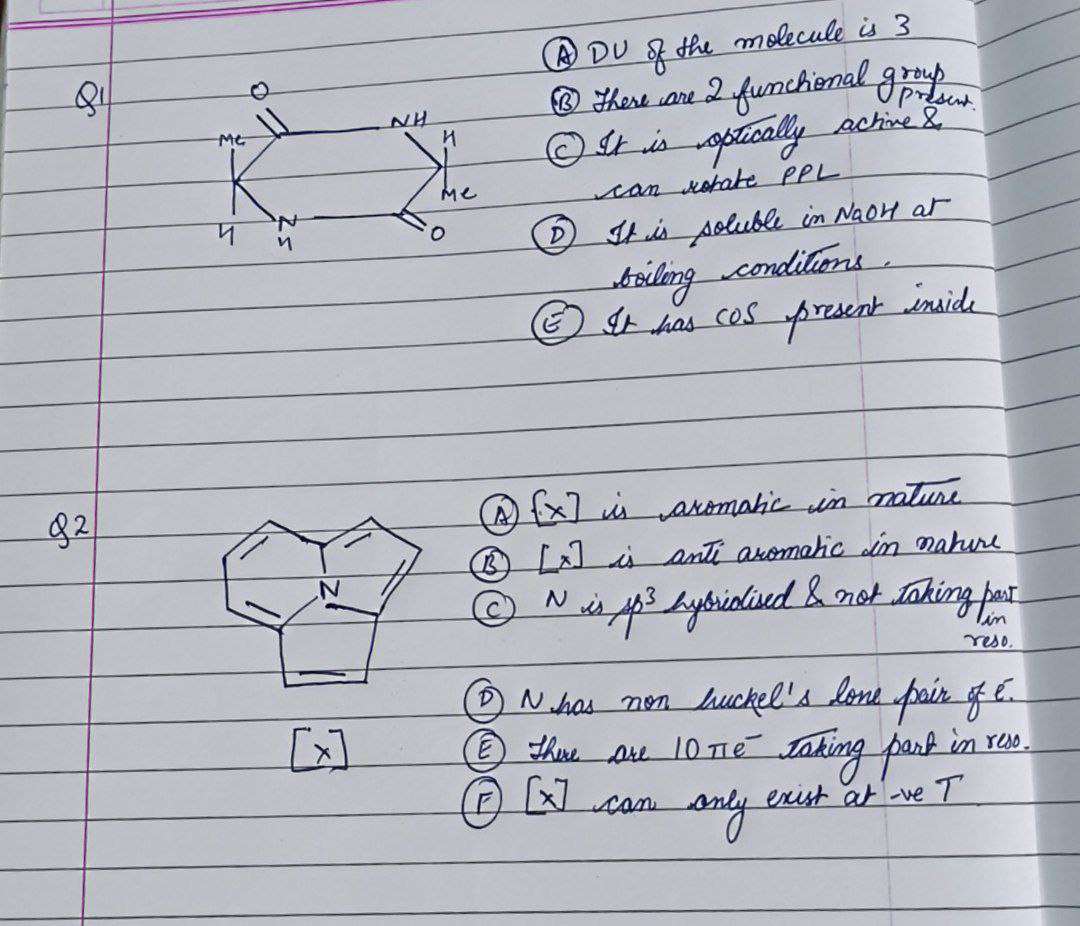 Q1
O
Me
NH
H
Me
H
N
H
O
Ⓐ DU of the molecule is 3
Ⓑ There are 2 functional group
present.
Ⓒ It is optically active &
can rotate PPL
Ⓓ It is soluble in NaOH at
boiling conditions.
Ⓔ It has COS present inside
Q2
N
[x]
Ⓐ [x] is aromatic in nature
Ⓑ [x] is anti aromatic in nature
Ⓒ N is sp³ hybridised & not taking part
in
reso.
Ⓓ N has non huckel's lone pair of e⁻.
Ⓔ There are 10 πe⁻ taking part in reso.
Ⓕ [x] can only exist at -ve T